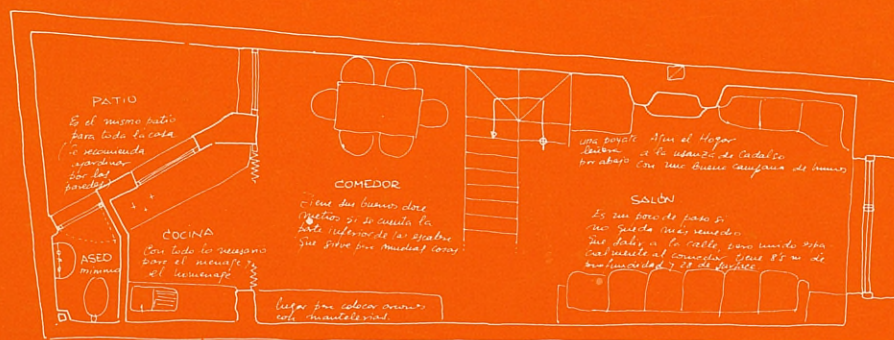 PATIO
Es el mismo patio
para toda la casa
(Se recomienda
ajardinar
por las
paredes)
ASEO
mínimo
COCINA
Con todo lo necesario
para el menaje y
el homenaje
COMEDOR
Tiene sus buenos doce
metros si se cuenta la
parte inferior de la escalera
que sirve para muchas cosas
lugar para colocar arcones
con mantelerías.
una poyata
leñera
por abajo
Aquí el Hogar
a la usanza de Cadalso
con una buena campana de humos
SALÓN
Es un poco de paso si
no queda más remedio
que salir a la calle, pero unido espa
cialmente al comedor tiene 8'5 m de
profundidad y 28 de surface